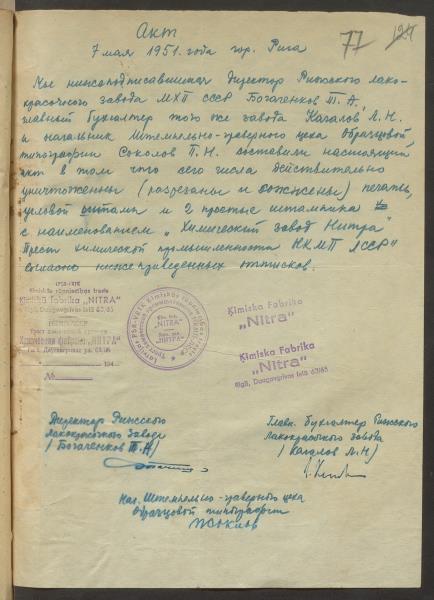 Акт
7 мая 1951 года гор. Рига
77
124
Мы нижеподписавшиеся Директор Рижского лако-
красочного завода МХП СССР Богаченков Т. А.,
главный бухгалтер того же завода Кагалов Л. Н.
и начальник Штемпельно-граверного цеха Образцовой
типографии Соколов П. Н. составили настоящий
акт в том что сего числа действительно
уничтожены (разрезаны и сожжены) печать,
угловой штамп и 2 простые штампика
с наименованием „Химический завод Нитра"
Трест химической промышленности НКМП ЛССР"
согласно нижеприведенных оттисков.
LPSR-VRTK
Ķīmiskās rūpniecības trests
Ķīmiskā Fabrika „NITRA"
Rīgā, Daugavgrīvas ielā 63/65
Трест химической
Химическая фабрика „НИТРА"
г. Рига, Даугавгривас ул. 63/65
194
№
Ķīm. fabr.
„NITRA"
Хим. фаб.
„НИТРА"
Ķīmiska Fabrika
„Nitra"
Ķīmiska Fabrika
„Nitra"
Rīgā, Daugavgrīvas ielā 63/65
Директор Рижского
лакокрасочного завода
/Богаченков Т. А/
Главн. бухгалтер Рижского
лакокрасочного завода
/Кагалов Л. Н/
Нач. Штемпельно-граверного цеха
Образцовой типографии